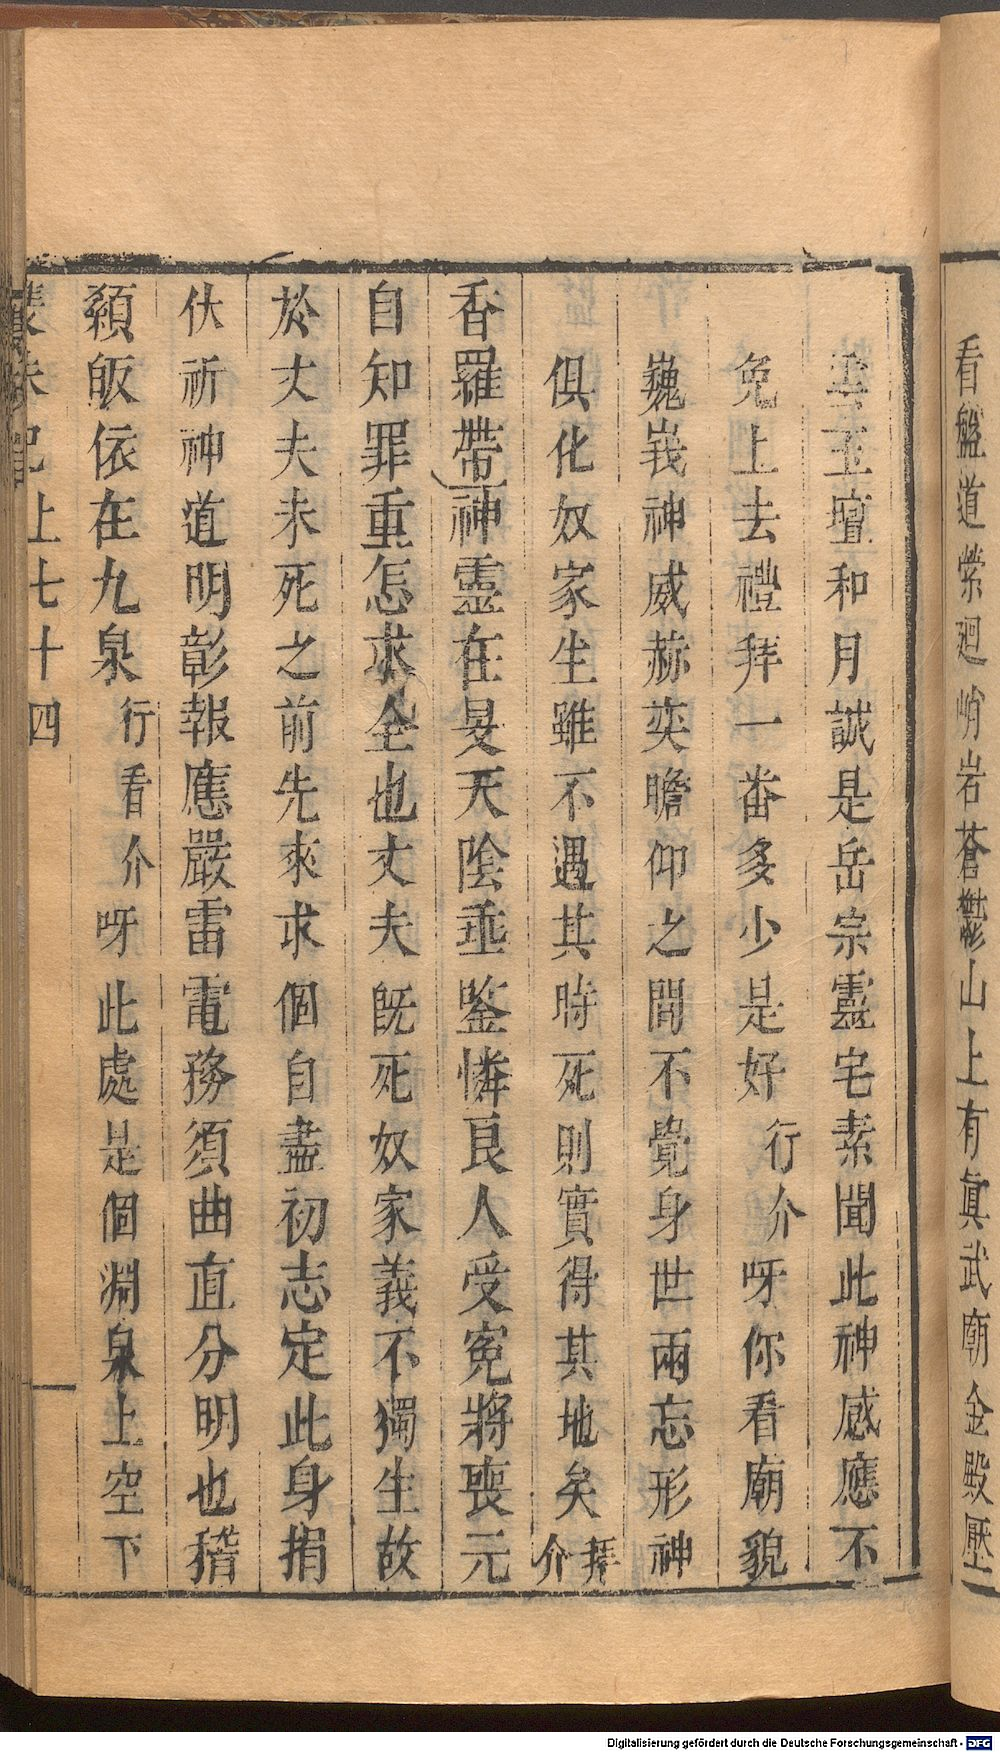 看盤道縈廻峭岩蒼鬱山上有眞武廟金殿壓
雲玉壇和月誠是岳宗靈宅素聞此神感應不
免上去禮拜一畨多少是好行介呀你看廟貌
巍峩神威赫奕瞻仰之間不覺身世兩忘形神
俱化奴家生雖不遇其時死則實得其地矣拜介
香羅帶神靈在旻天陰垂鑒憐良人受寃將喪元
自知罪重怎求全也丈夫旣死奴家義不獨生故
於丈夫未死之前先來求個自盡初志定此身捐
伏祈神道明彰報應嚴雷電務須曲直分明也稽
顙皈依在九泉行看介呀此處是個淵泉上空下
朱記上七十四
Digitalisierung gefördert durch die Deutsche Forschungsgemeinschaft - DFG